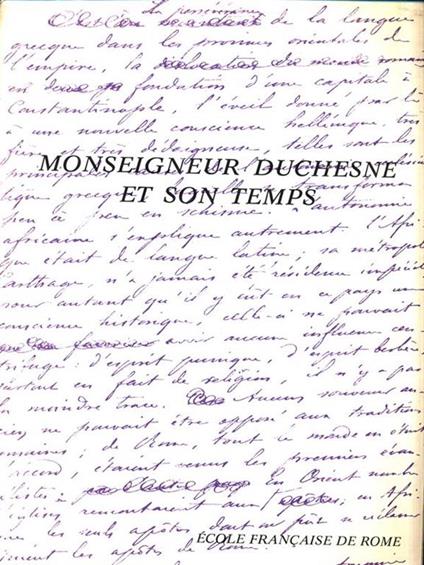 La persistance
de la langue
grecque dans les provinces orientales de
l'empire, la
en fondation d'une capitale à
Constantinople, l'éveil donné par là
à une nouvelle conscience hellénique, très
fière et très dédaigneuse, telles sont les
MONSEIGNEUR DUCHESNE
ET SON TEMPS
peu à peu en schisme. L'autonomie
africaine s'explique autrement. l'Afri
que était de langue latine; sa métropole
Carthage, n'a jamais été résidence impériale
pour autant qu'il y eût en ce pays une
conscience historique, celle-ci ne pouvait
avoir aucune influence cen
trifuge: d'esprit punique, d'esprit berbère,
surtout en fait de religion, il n'y a pas
la moindre trace. Aucun souvenir an
cien ne pouvait être opposé aux traditions
romaines; de Rome, tout le monde en était
d'accord, étaient venus les premiers évan
gélistes à en Orient nombre
d'églises remontaient aux apôtres; en Afri
que les seuls apôtres dont on pût se réclamer
étaient les apôtres de Rome.
ÉCOLE FRANÇAISE DE ROME